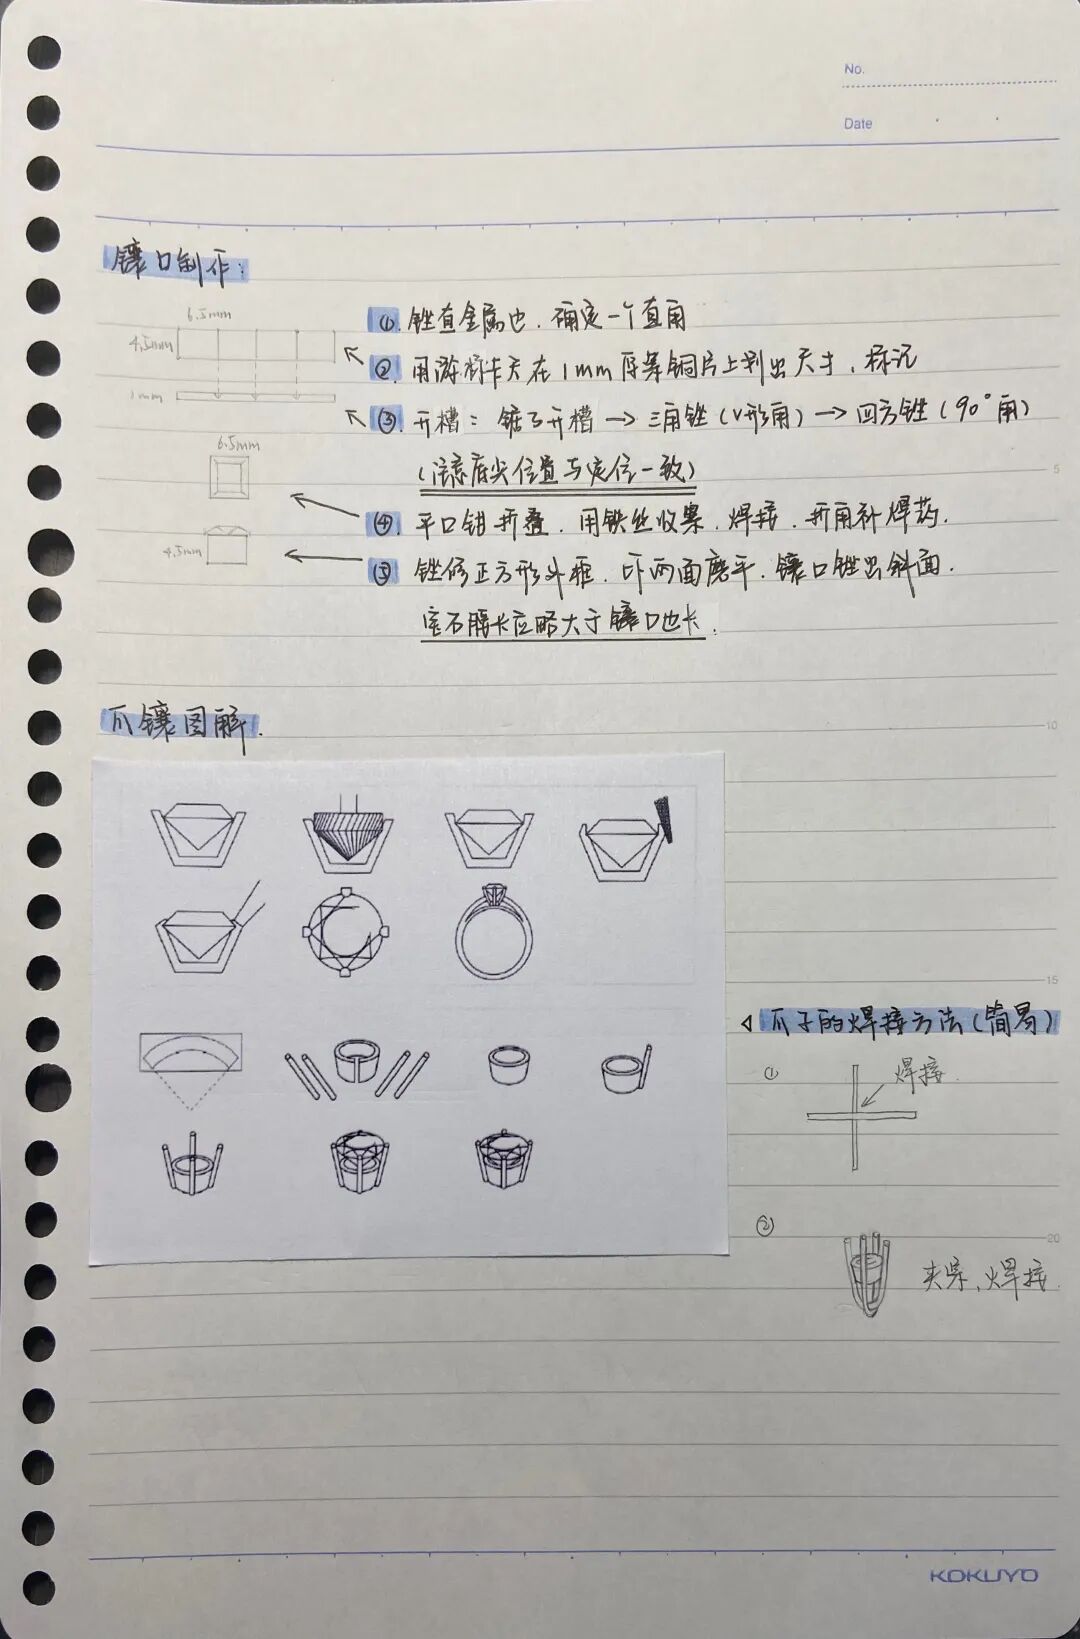 No.
Date
镶口制作：
6.5mm
4.5mm
1mm
①. 锉直金属边. 确定一个直角
②. 用游标卡尺在1mm厚紫铜片上划出尺寸、标记
③. 开槽：锯子开槽→三角锉(V形角)→四方锉(90°角)
(注意底尖位置与定位一致)
6.5mm
④. 平口钳折叠. 用铁丝收紧. 焊接. 折角补焊药.
4.5mm
⑤. 锉修正方形外框. 上下两面磨平. 镶口锉出斜面.
宝石腰长应略大于镶口边长.
5
爪镶图解.
10
15
爪子的焊接方法(简易)
① 焊接.
② 夹紧、焊接.
20
KOKUYO